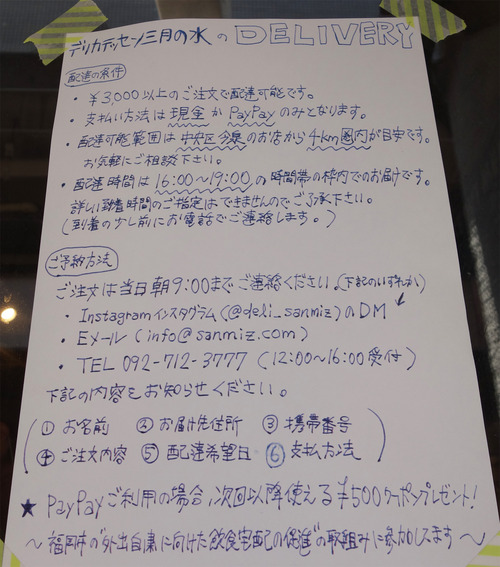 デリカデッセン三月の水のDELIVERY
配達の条件
・¥3,000以上のご注文で配達可能です。
・支払い方法は現金かPayPayのみとなります。
・配達可能範囲は中央区今泉のお店から4km圏内が目安です。
お気軽にご相談下さい。
・配達時間は16:00〜19:00の時間帯の枠内でのお届けです。
詳しい到着時間のご指定はできませんのでご了承下さい。
(到着の少し前にお電話でご連絡します。)
ご予約方法
ご注文は当日朝9:00までご連絡ください。(下記のいずれか)
・Instagramインスタグラム(@deli_sanmiz)のDM
・Eメール(info@sanmiz.com)
・TEL 092-712-3777 (12:00〜16:00受付)
下記の内容をお知らせください。
(① お名前 ② お届け先住所 ③ 携帯番号
④ ご注文内容 ⑤ 配達希望日 ⑥ 支払方法)
★ PayPayご利用の場合、次回以降使える¥500クーポンプレゼント!
〜福岡市の"外出自粛に向けた飲食宅配の促進"の取組みに参加してます〜